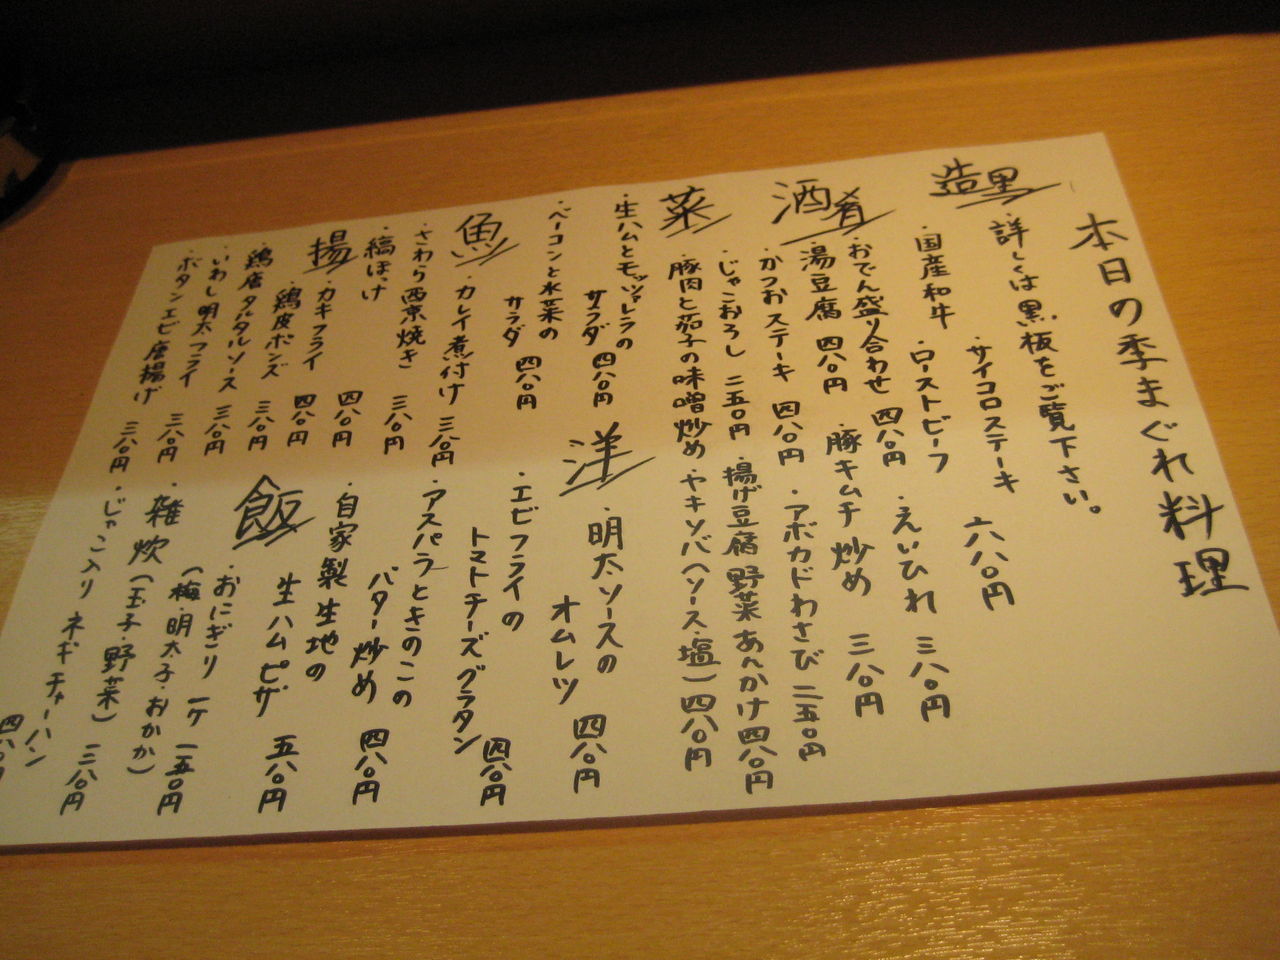 本日の季まぐれ料理
造里
詳しくは黒板をご覧下さい。
・国産和牛
サイコロステーキ 六八〇円
・ローストビーフ
酒肴
・おでん盛り合わせ 四八〇円
・えいひれ 三八〇円
・湯豆腐 四八〇円
・豚キムチ炒め 三八〇円
・かつおステーキ 四八〇円
・アボカドわさび 二五〇円
・じゃこおろし 二五〇円
・揚げ豆腐野菜あんかけ 四八〇円
菜
・豚肉と茄子の味噌炒め
・ヤキソバ(ソース・塩) 四八〇円
・生ハムとモッツァレラの
サラダ 四八〇円
・ベーコンと水菜の
サラダ 四八〇円
洋
・明太ソースの
オムレツ 四八〇円
・エビフライの
トマトチーズグラタン 四八〇円
・アスパラときのこの
バター炒め 四八〇円
・自家製生地の
生ハムピザ 五八〇円
魚
・カレイ煮付け 三八〇円
・さわら西京焼き 三八〇円
・縞ほっけ 四八〇円
揚
・カキフライ 四八〇円
・鶏皮ポンズ 三八〇円
・鶏唐タルタルソース 三八〇円
・いわし明太フライ 三八〇円
・ボタンエビ唐揚げ 三八〇円
飯
・おにぎり 一ケ 一五〇円
(梅・明太子・おかか)
・雑炊(玉子・野菜) 三八〇円
・じゃこ入りネギチャーハン
四八〇円